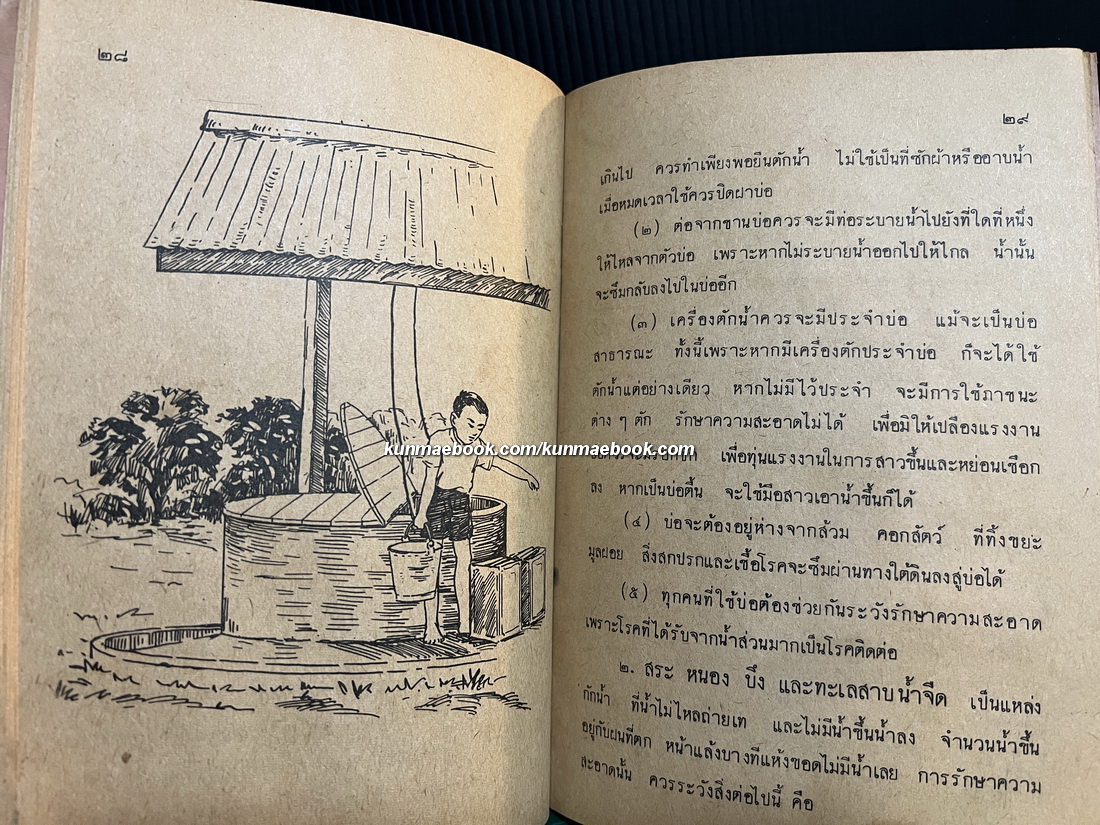 ๒๘
๒๙
เกินไป ควรทำเพียงพอยืนตักน้ำ ไม่ใช้เป็นที่ซักผ้าหรืออาบน้ำ
เมื่อหมดเวลาใช้ควรปิดฝาบ่อ
(๒) ต่อจากชานบ่อควรจะมีท่อระบายน้ำไปยังที่ใดที่หนึ่ง
ให้ไหลจากตัวบ่อ เพราะหากไม่ระบายน้ำออกไปให้ไกล น้ำนั้น
จะซึมกลับลงไปในบ่ออีก
(๓) เครื่องตักน้ำควรจะมีประจำบ่อ แม้จะเป็นบ่อ
สาธารณะ ทั้งนี้เพราะหากมีเครื่องตักประจำบ่อ ก็จะได้ใช้
ตักน้ำแต่อย่างเดียว หากไม่มีไว้ประจำ จะมีการใช้ภาชนะ
ต่าง ๆ ตัก รักษาความสะอาดไม่ได้ เพื่อมิให้เปลืองแรงงาน
kunmaebook.com/kunmaebook.com
เพื่อทุ่นแรงงานในการสาวขึ้นและหย่อนเชือก
ลง หากเป็นบ่อตื้น จะใช้มือสาวเอาน้ำขึ้นก็ได้
(๔) บ่อจะต้องอยู่ห่างจากส้วม คอกสัตว์ ที่ทิ้งขยะ
มูลฝอย สิ่งสกปรกและเชื้อโรคจะซึมผ่านทางใต้ดินลงสู่บ่อได้
(๕) ทุกคนที่ใช้บ่อต้องช่วยกันระวังรักษาความสะอาด
เพราะโรคที่ได้รับจากน้ำส่วนมากเป็นโรคติดต่อ
๒. สระ หนอง บึง และทะเลสาบน้ำจืด เป็นแหล่ง
กักน้ำ ที่น้ำไม่ไหลถ่ายเท และไม่มีน้ำขึ้นน้ำลง จำนวนน้ำขึ้น
อยู่กับฝนที่ตก หน้าแล้งบางทีแห้งขอดไม่มีน้ำเลย การรักษาความ
สะอาดนั้น ควรระวังสิ่งต่อไปนี้ คือ